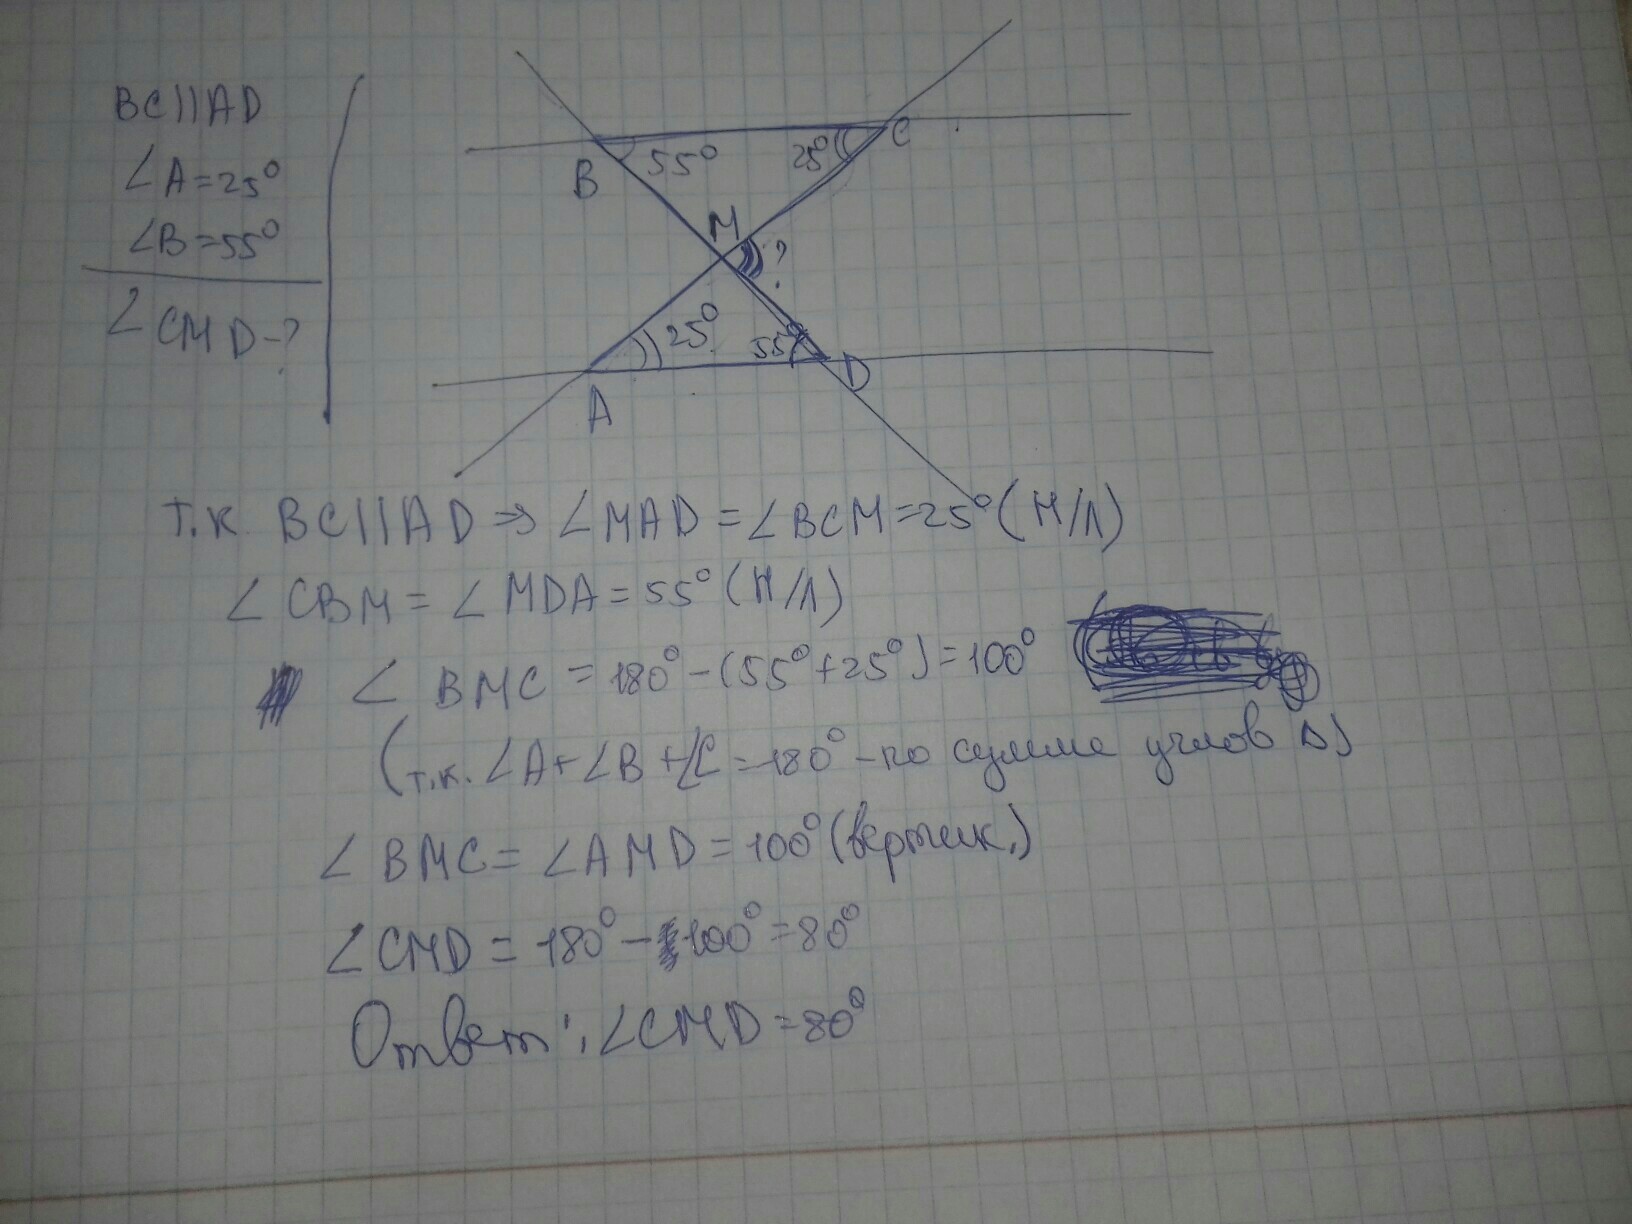 BC||AD
∠A=25°
∠B=55°
∠CMD-?
B 55° 25° C
M ?
25° 55°
A D
т.к BC||AD ⇒ ∠MAD = ∠BCM=25° (Н/Л)
∠CBM = ∠MDA = 55° (Н/Л)
∠BMC = 180°-(55°+25°)=100°
(т.к. ∠A+∠B+∠C=180° - по сумме углов Δ)
∠BMC = ∠AMD = 100° (вертик.)
∠CMD = 180° - 100° = 80°
Ответ: ∠CMD = 80°